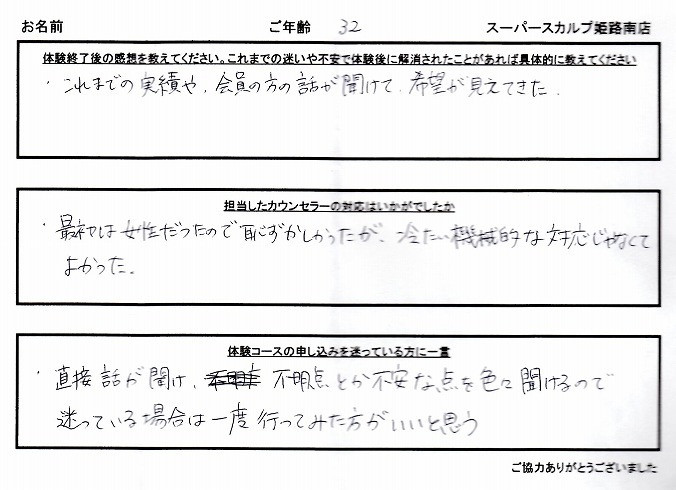 お名前 ご年齢 32 スーパースカルプ姫路南店
体験終了後の感想を教えてください。これまでの迷いや不安で体験後に解消されたことがあれば具体的に教えてください
・これまでの実績や、会員の方の話が聞けて、希望が見えてきた.
担当したカウンセラーの対応はいかがでしたか
・最初は女性だったので恥ずかしかったが、冷たい機械的な対応じゃなくて
よかった.
体験コースの申し込みを迷っている方に一言
・直接話が聞け、不明点とか不安な点を色々聞けるので
迷っている場合は一度行ってみた方がいいと思う
ご協力ありがとうございました